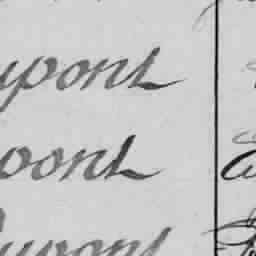 upont
pont
upont